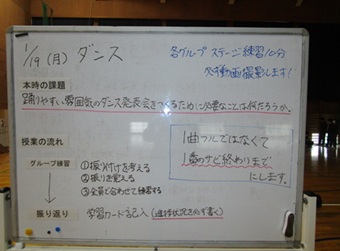 1/19(月) ダンス
各グループ ステージ練習10分
必ず動画撮影します!
本時の課題
踊りやすい雰囲気のダンス発表会をつくるために必要なことは何だろうか。
授業の流れ
1曲フルではなくて
1番のサビ終わりまで
にします。
グループ練習
①振り付けを考える
②振りを覚える
③全員で合わせて練習する
振り返り
学習カード記入(進捗状況を必ず書く)